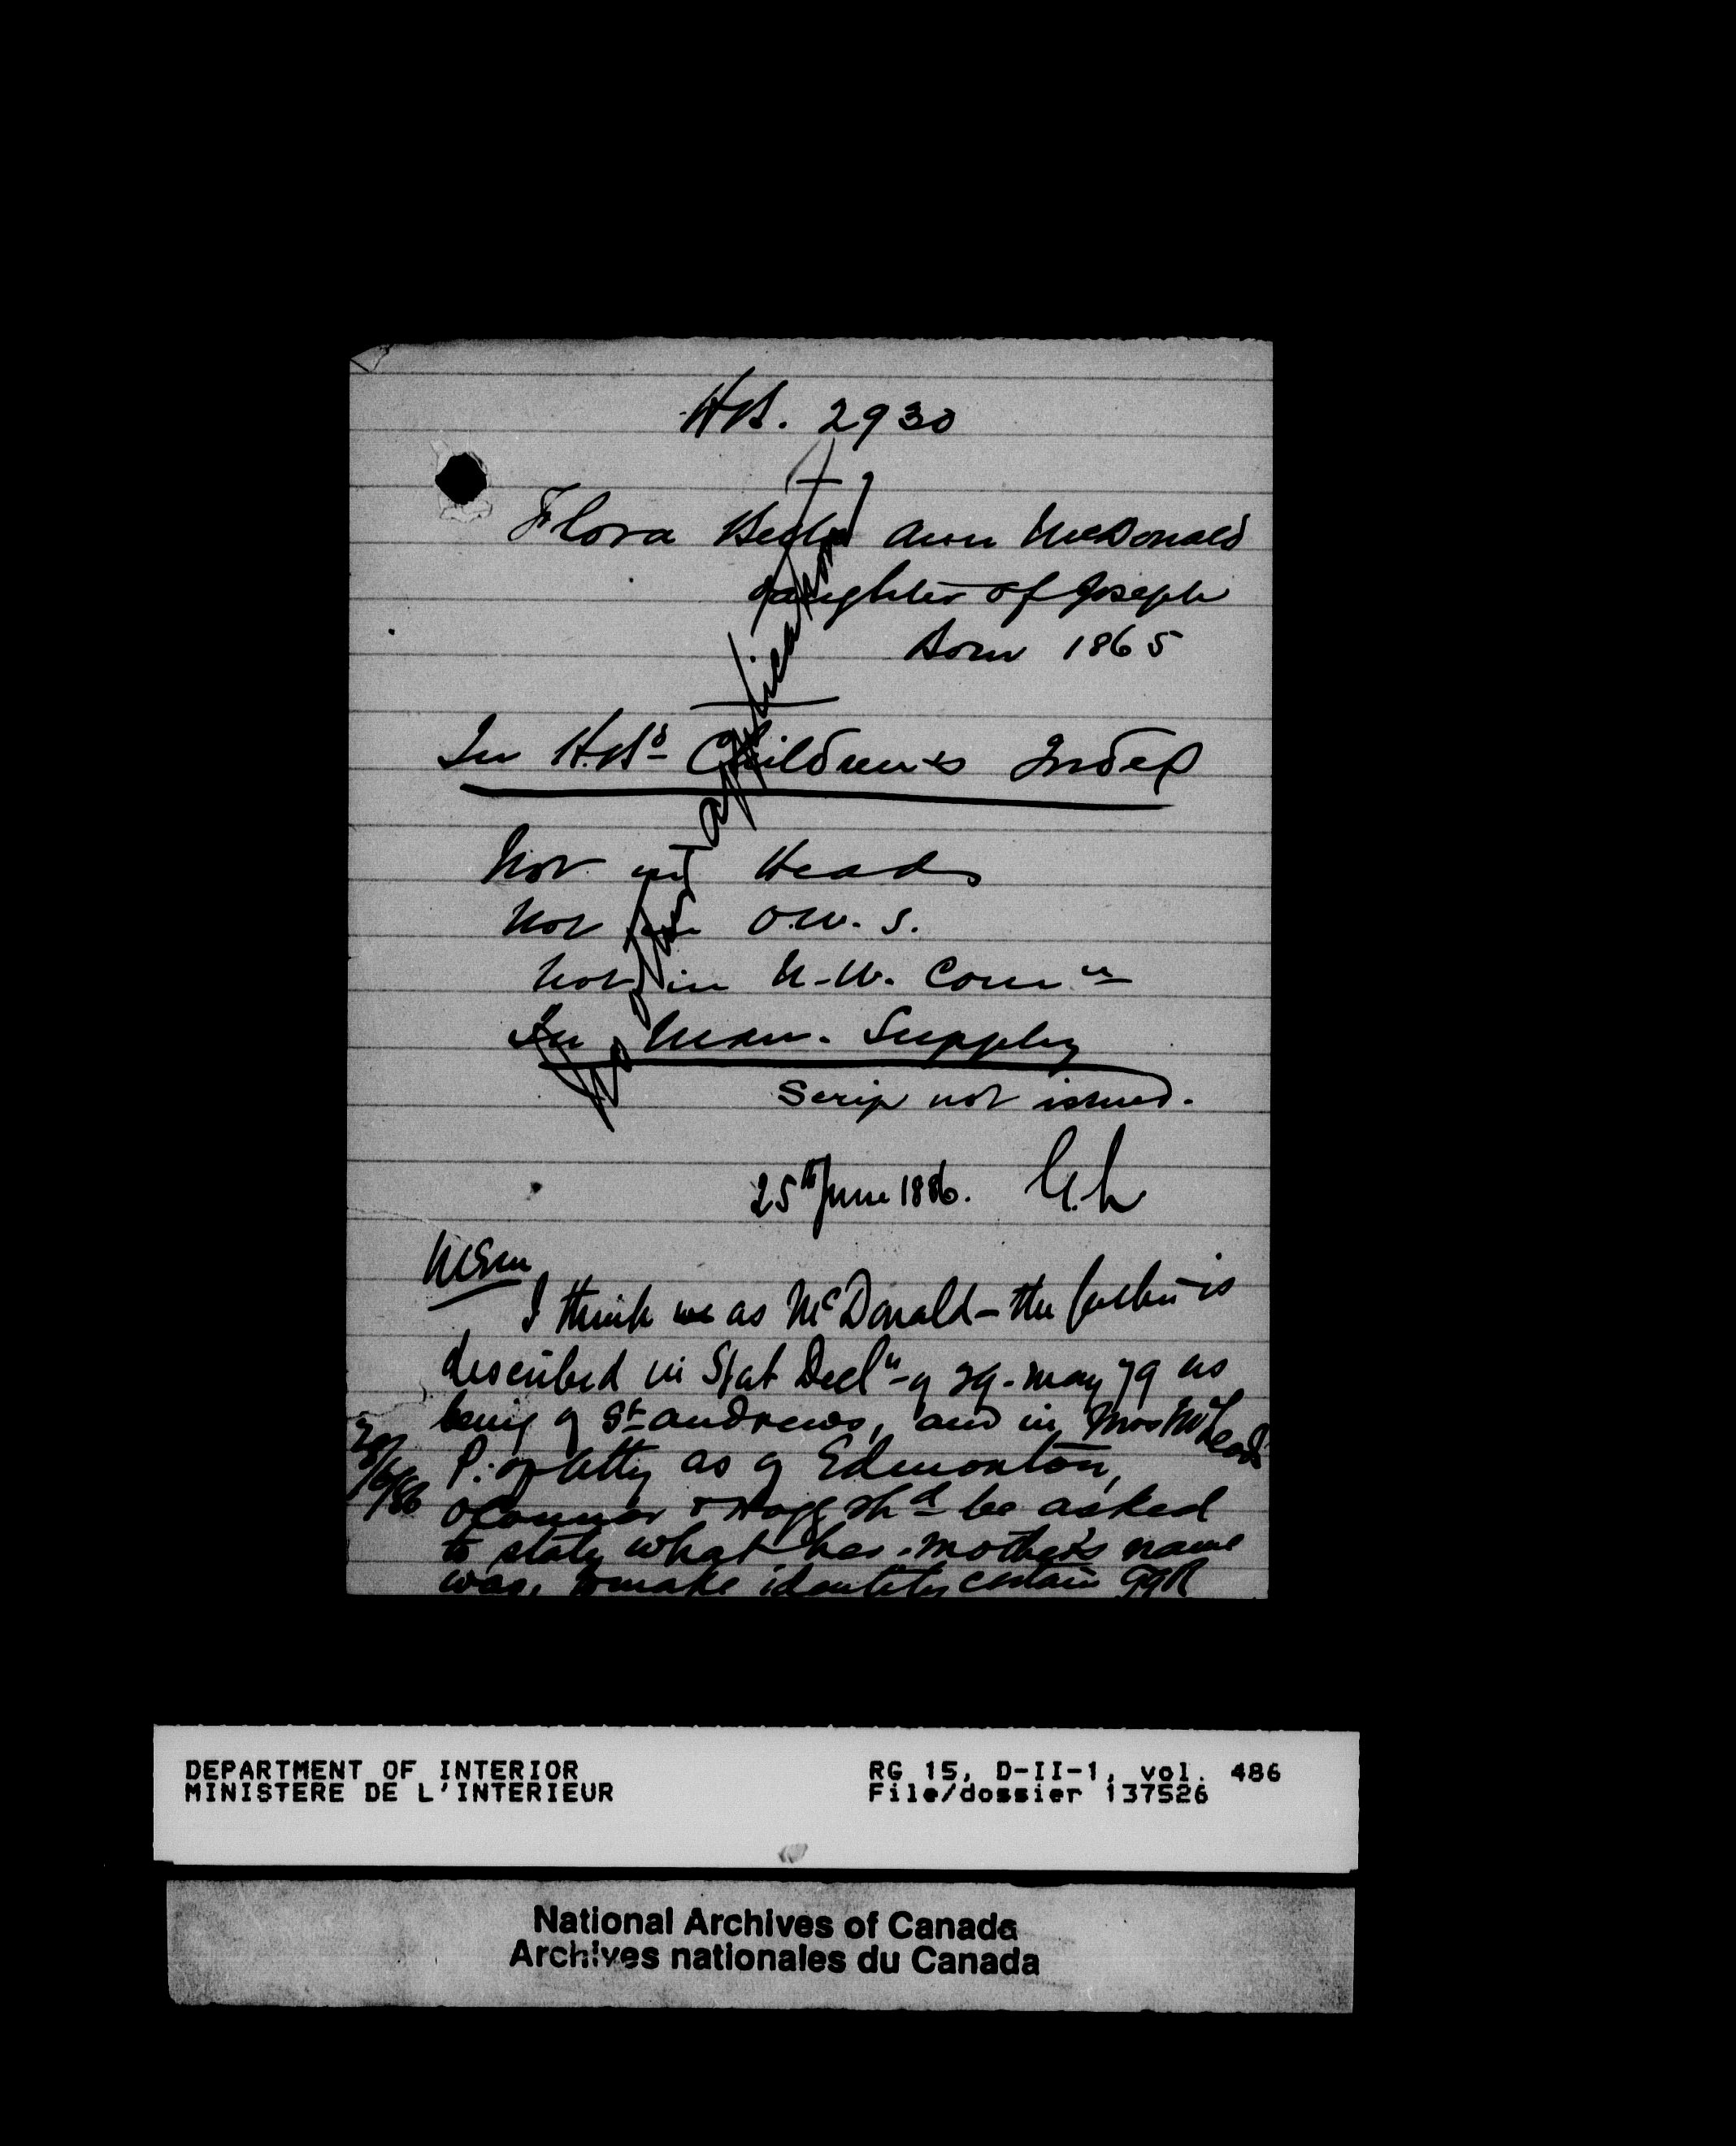 HB. 2930
Flora Ann McDonald
daughter of Joseph
Born 1865
In H.Bs Children's Index
Not in Heads
Not in O.W.S.
Not in N.W. Comn
In Man. Supply
Scrip not issued.
No application
25th June 1886.
I think as McDonald - the father - is
described in Stat Decln of 29 - May 79 as
being of St Andrews, and in Mrs McLeod's
P. of Atty as of Edmonton,
O'Connor & Hogg shd be asked
to state what her mother's name
was, to make identity certain GGR
28/6/86
DEPARTMENT OF INTERIOR
MINISTERE DE L'INTERIEUR
RG 15, D-II-1, vol. 486
File/dossier 137526
National Archives of Canada
Archives nationales du Canada